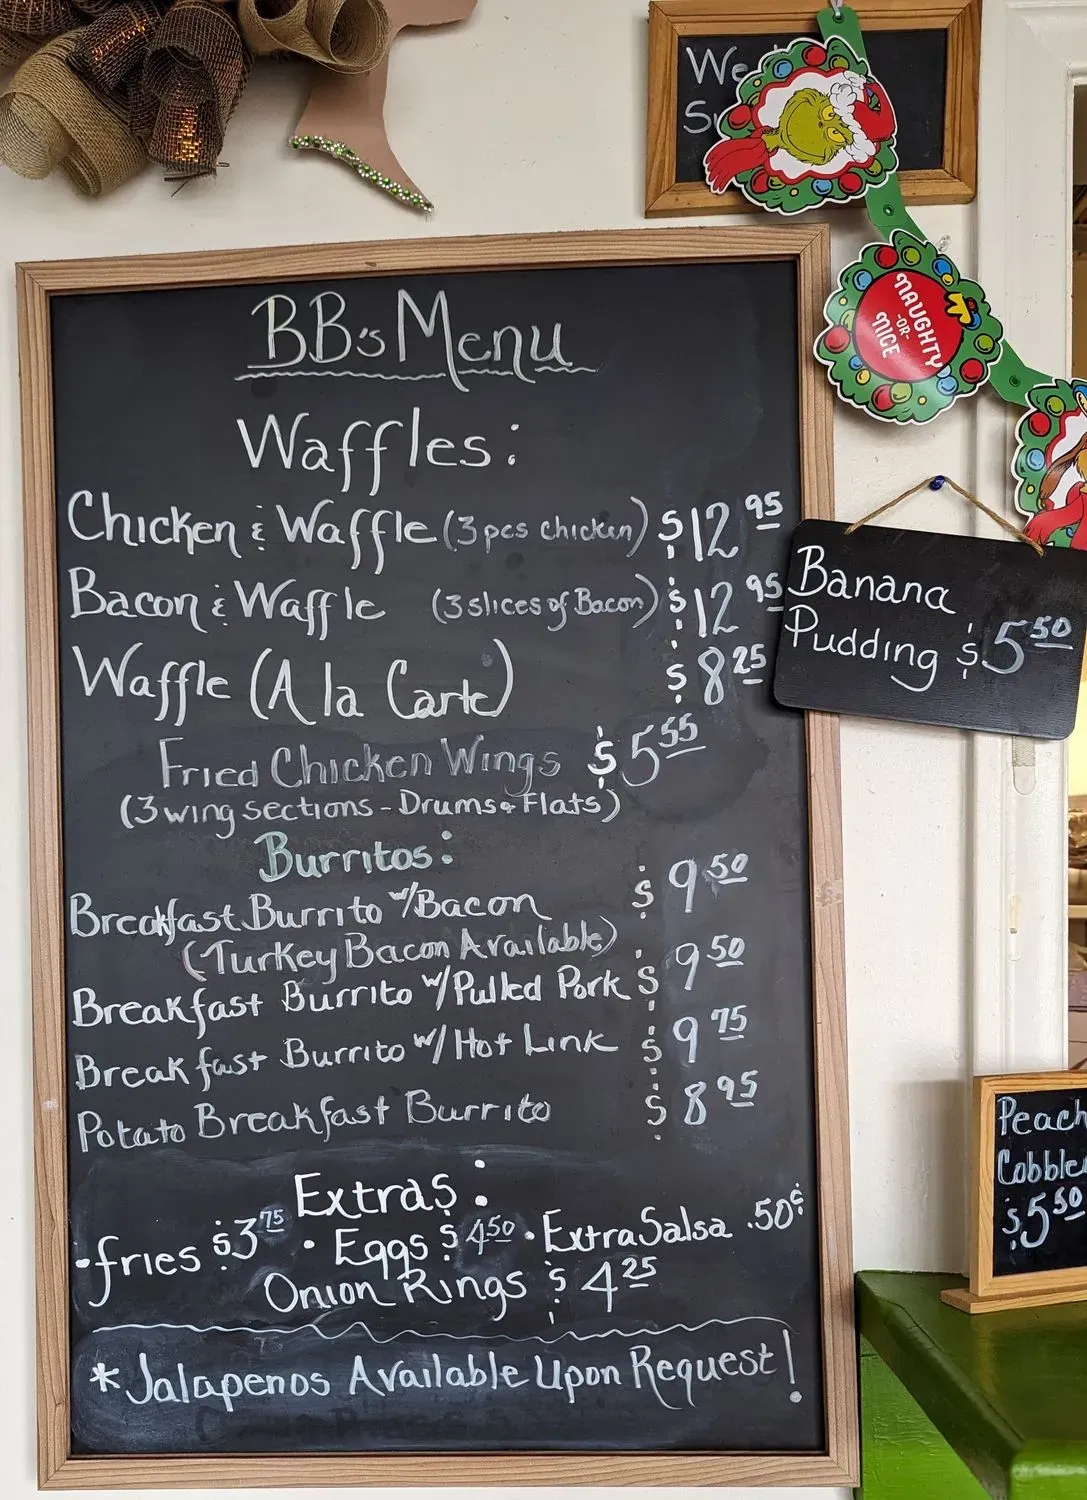 We
BB's Menu
Waffles:
Chicken & Waffle (3 pcs chicken) $12.95
Bacon & Waffle (3 slices of Bacon) $12.95
Waffle (A la Carte) $8.25
Fried Chicken Wings $5.55
(3 wing sections - Drums & Flats)
Burritos:
Breakfast Burrito w/Bacon $9.50
(Turkey Bacon Available)
Breakfast Burrito w/Pulled Pork $9.50
Breakfast Burrito w/Hot Link $9.75
Potato Breakfast Burrito $8.95
Extras:
• fries $3.75 • Eggs $4.50 • Extra Salsa .50¢
Onion Rings $4.25
*Jalapenos Available Upon Request!
NAUGHTY
-OR-
NICE
Banana
Pudding $5.50
Peach
Cobbler
$5.50